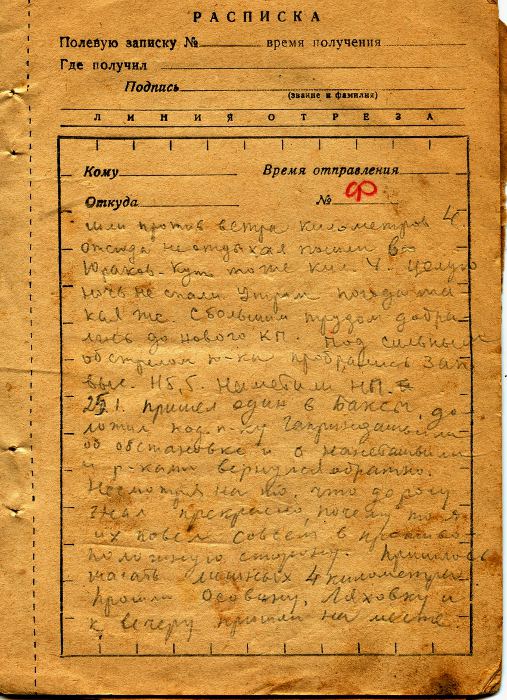 РАСПИСКА
Полевую записку № время получения
Где получил
Подпись
(звание и фамилия)
ЛИНИЯ ОТРЕЗА
Кому Время отправления
Откуда № Ф
шли против ветра километров 4.
Отсюда не отдыхая пошли во
Юраков-Кут тоже кил. 4. Целую
ночь не спали. Утром погода та-
кая же. С большим трудом добра-
лись до нового КП. Под сильным
обстрелом пр-ка пробрались зап
выс. 115,5. Наметили НП.
25.1. Пришел один в Баксы, до-
ложил подп-ку
об обстановке и с
и р-ками вернулся обратно.
Несмотря на то, что дорогу
знал прекрасно, почему то я
их повел совсем в противо-
положную сторону. Пришлось
шагать лишных 4 километра.
Прошли Осовину, Ляховку и
к вечеру пришли на место.